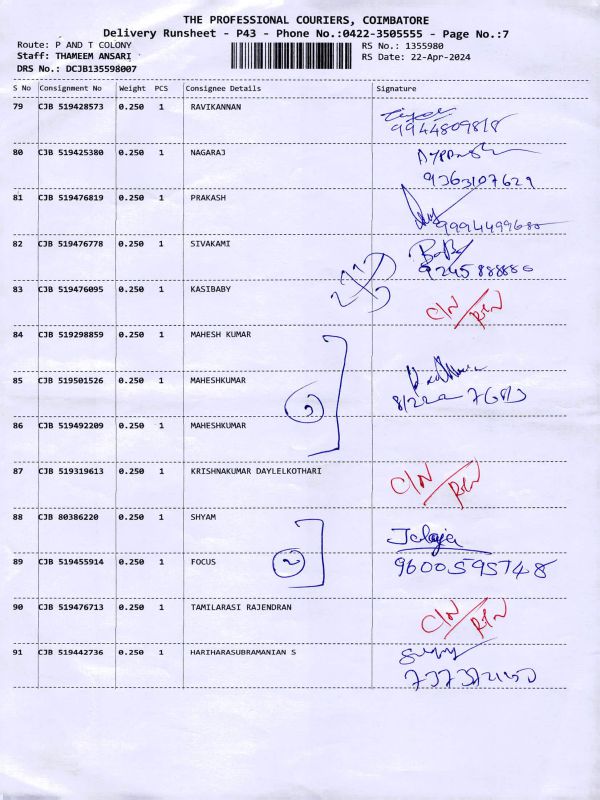 THE PROFESSIONAL COURIERS, COIMBATORE
Delivery Runsheet - P43 - Phone No.:0422-3505555 - Page No.:7
Route: P AND T COLONY RS No.: 1355980
Staff: THAMEEM ANSARI RS Date: 22-Apr-2024
DRS No.: DCJB135598007
S No Consignment No Weight PCS Consignee Details Signature
79 CJB 519428573 0.250 1 RAVIKANNAN
9944809818
80 CJB 519425380 0.250 1 NAGARAJ
9363107629
81 CJB 519476819 0.250 1 PRAKASH
9994499680
82 CJB 519476778 0.250 1 SIVAKAMI
9245888880
83 CJB 519476095 0.250 1 KASIBABY C/N RTN
84 CJB 519298859 0.250 1 MAHESH KUMAR
85 CJB 519501526 0.250 1 MAHESHKUMAR
3
86 CJB 519492209 0.250 1 MAHESHKUMAR
87 CJB 519319613 0.250 1 KRISHNAKUMAR DAYLELKOTHARI C/N RTN
88 CJB 80386220 0.250 1 SHYAM
89 CJB 519455914 0.250 1 FOCUS 2 9600595748
90 CJB 519476713 0.250 1 TAMILARASI RAJENDRAN C/N RTN
91 CJB 519442736 0.250 1 HARIHARASUBRAMANIAN S